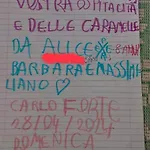 VOSTRA OSPITALITÀ
E DELLE CARAMELLE
DA ALICE E
BARBARA E MASSIMI
LIANO
CARLO FORTE
28/04/2014
DOMENICA